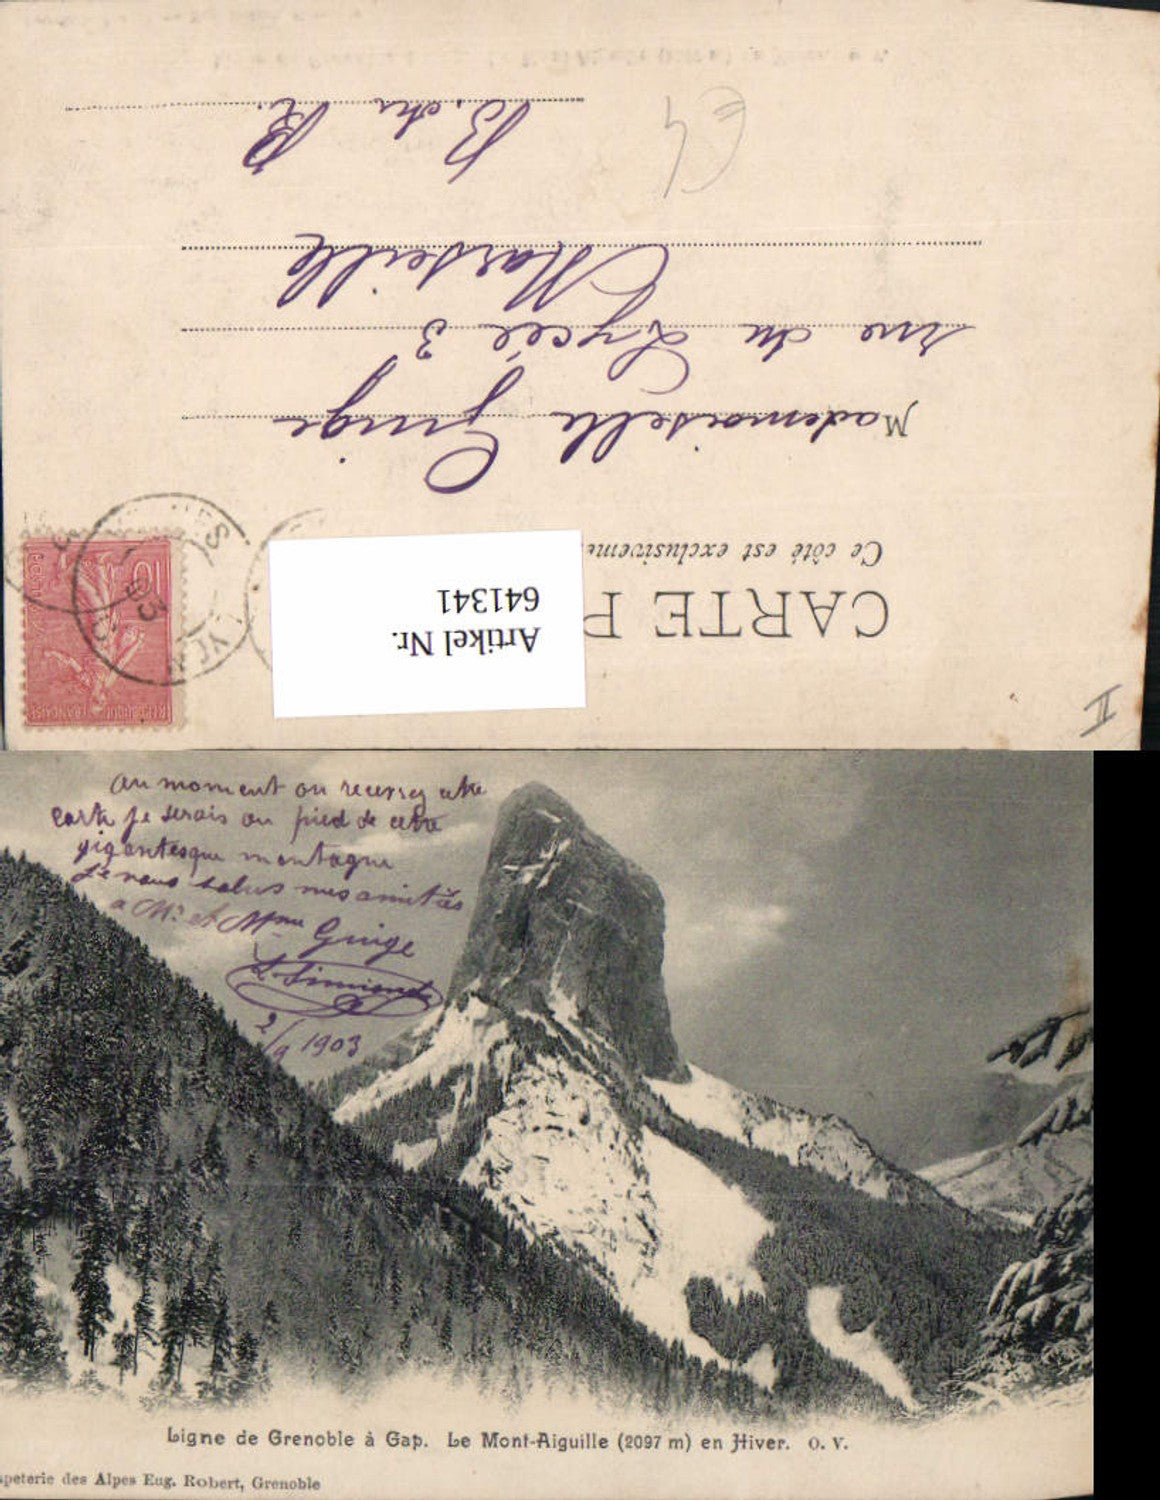 CARTE P
Ce côté est exclusiveme
Mademoiselle Guige
rue du Lycée 3
Marseille
B. du R.
€4
II
Artikel Nr.
641341
10
03
au moment ou recevrez cette
carte je serais au pied de cette
gigantesque montagne
Je vous salus mes amitiés
a Mr et Mme Guige
2/9 1903
Ligne de Grenoble à Gap. Le Mont-Aiguille (2097 m) en Hiver. O. V.
apeterie des Alpes Eug. Robert, Grenoble